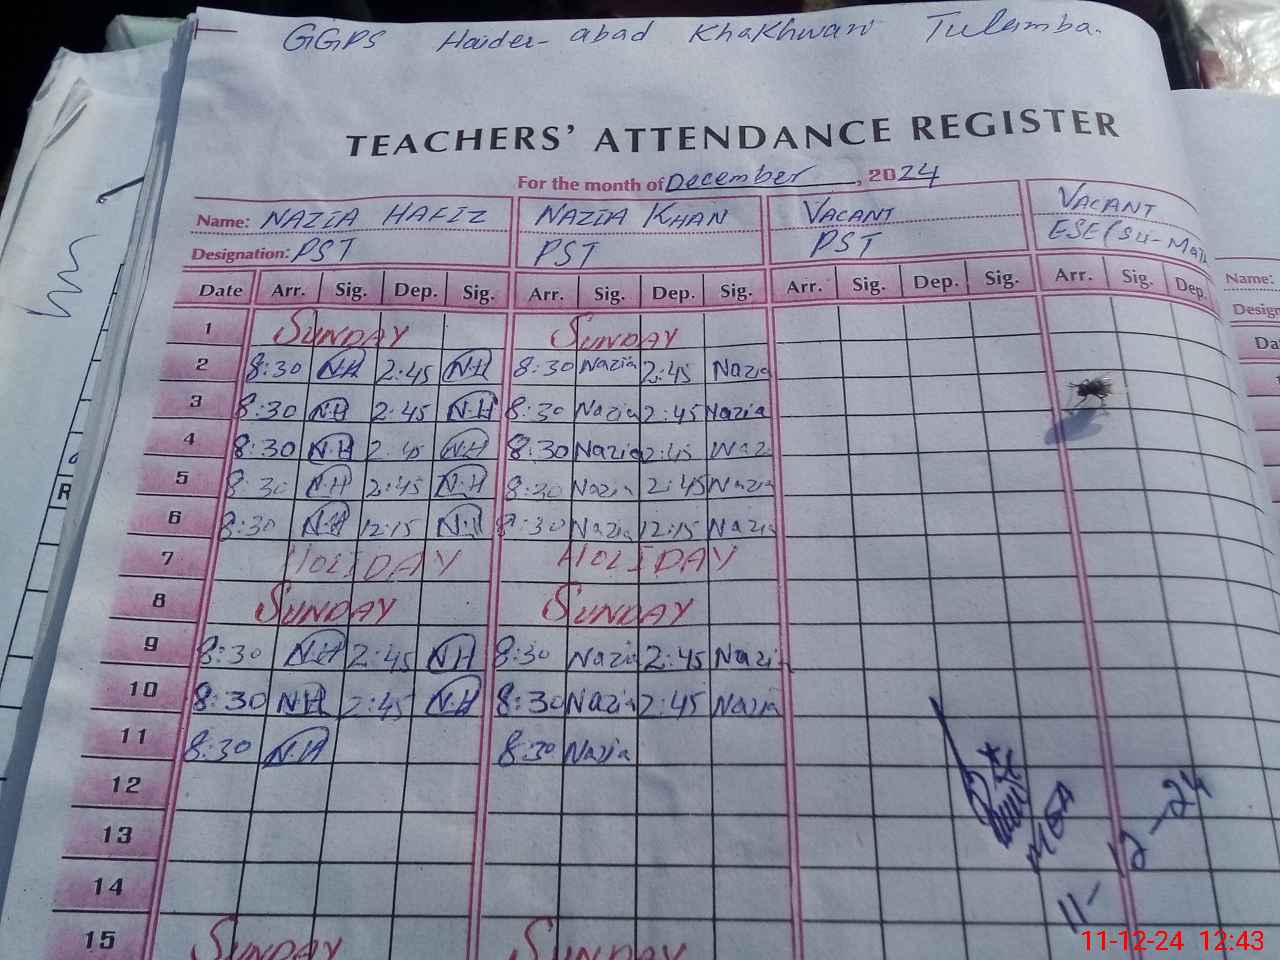 GGPS Haider-abad Khakhwani Tulamba.
TEACHERS' ATTENDANCE REGISTER
For the month of December, 2024
Name: NAZIA HAFIZ NAZIA KHAN VACANT VACANT
Designation: PST PST PST ESE (Sci-Mat
Date Arr. Sig. Dep. Sig. Arr. Sig. Dep. Sig. Arr. Sig. Dep. Sig. Arr. Sig. Dep.
1 SUNDAY SUNDAY
2 8:30 N.H 2:45 N.H 8:30 Nazia 2:45 Nazia
3 8:30 N.H 2:45 N.H 8:30 Nazia 2:45 Nazia
4 8:30 N.H 2:45 N.H 8:30 Nazia 2:45 Nazi
5 8:30 N.H 2:45 N.H 8:30 Nazia 2:45 Nazia
6 8:30 N.H 12:15 N.H 8:30 Nazia 12:15 Nazia
7 HOLIDAY HOLIDAY
8 SUNDAY SUNDAY
9 8:30 N.H 2:45 N.H 8:30 Nazia 2:45 Nazia
10 8:30 N.H 2:45 N.H 8:30 Nazia 2:45 Nazia
11 8:30 N.H 8:30 Nazia
12
13
14
15 SUNDAY SUNDAY
MEA
11-12-24
Name:
Design
Da
R
11-12-24 12:43